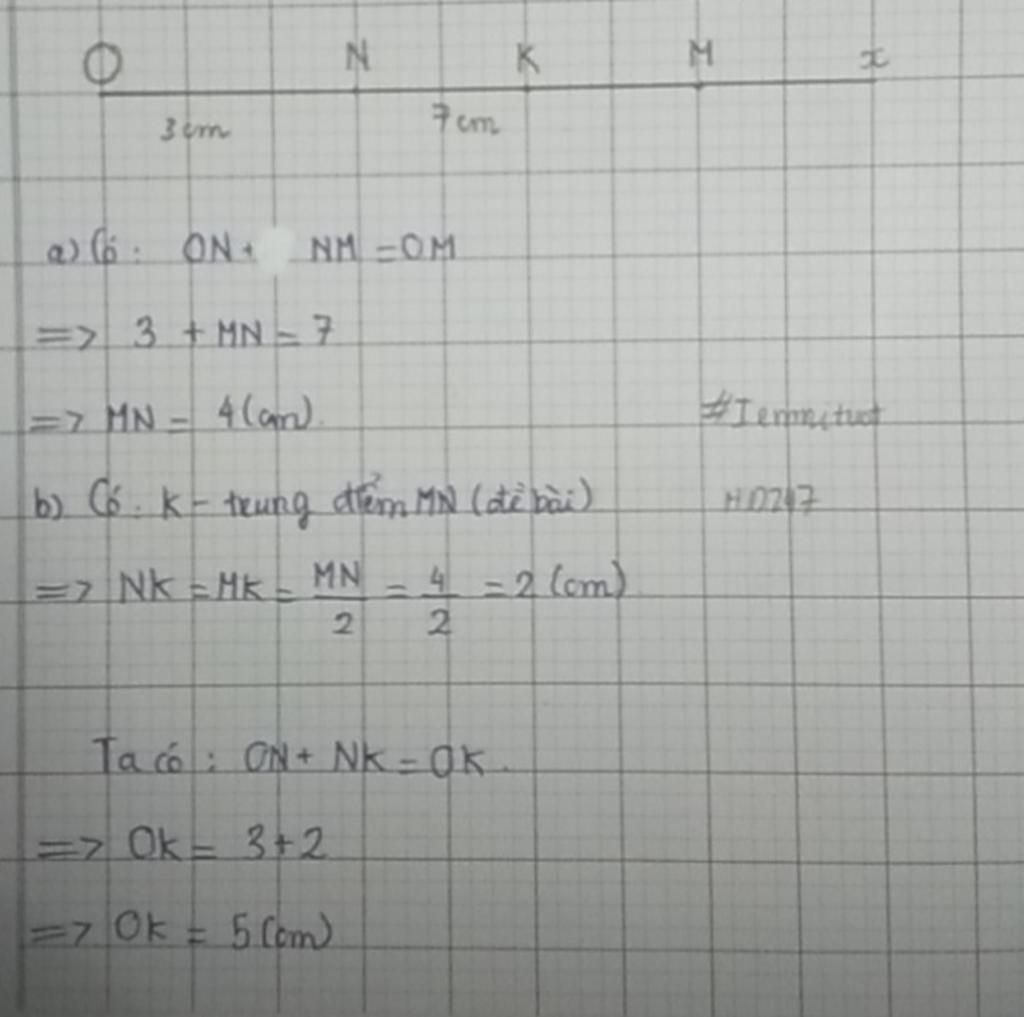 O N K M x
3cm 7cm
a) Có: ON + NM = OM
=> 3 + MN = 7
=> MN = 4 (cm).
b) Có: K - trung điểm MN (đề bài)
=> NK = MK = MN/2 = 4/2 = 2 (cm)
Ta có: ON + NK = OK.
=> OK = 3+2
=> OK = 5 (cm)